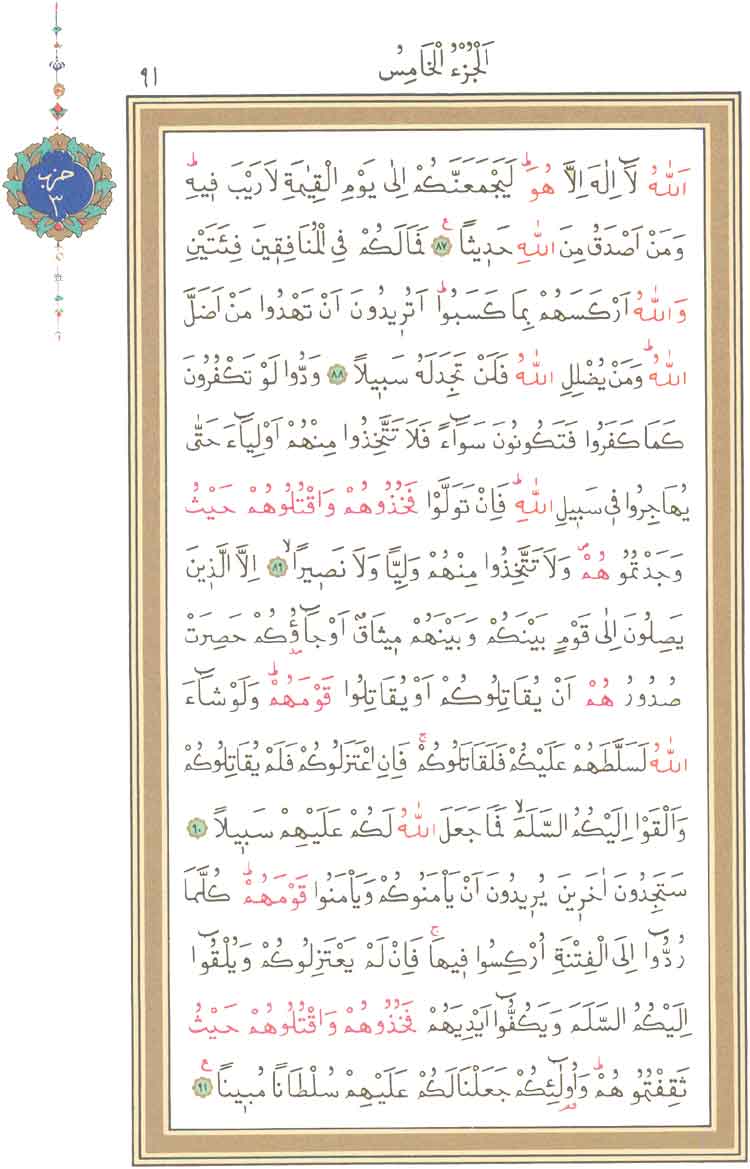 اَلْجُزْءُ الْخَامِسُ
٩١
حزب
٣
اَللّٰهُ لَٓا اِلٰهَ اِلَّا هُوَۜ لَيَجْمَعَنَّكُمْ اِلٰى يَوْمِ الْقِيٰمَةِ لَا رَيْبَ ف۪يهِۜ
وَمَنْ اَصْدَقُ مِنَ اللّٰهِ حَد۪يثًاۧ ﴿٨٧﴾ فَمَا لَكُمْ فِي الْمُنَافِق۪ينَ فِئَتَيْنِ
وَاللّٰهُ اَرْكَسَهُمْ بِمَا كَسَبُواۜ اَتُر۪يدُونَ اَنْ تَهْدُوا مَنْ اَضَلَّ
اللّٰهُۜ وَمَنْ يُضْلِلِ اللّٰهُ فَلَنْ تَجِدَ لَهُ سَب۪يلًا ﴿٨٨﴾ وَدُّوا لَوْ تَكْفُرُونَ
كَمَا كَفَرُوا فَتَكُونُونَ سَوَٓاءً فَلَا تَتَّخِذُوا مِنْهُمْ اَوْلِيَٓاءَ حَتّٰى
يُهَاجِرُوا ف۪ي سَب۪يلِ اللّٰهِۜ فَاِنْ تَوَلَّوْا فَخُذُوهُمْ وَاقْتُلُوهُمْ حَيْثُ
وَجَدْتُمُوهُمْۖ وَلَا تَتَّخِذُوا مِنْهُمْ وَلِيًّا وَلَا نَص۪يرًاۙ ﴿٨٩﴾ اِلَّا الَّذ۪ينَ
يَصِلُونَ اِلٰى قَوْمٍ بَيْنَكُمْ وَبَيْنَهُمْ م۪يثَاقٌ اَوْ جَٓاؤُ۫كُمْ حَصِرَتْ
صُدُورُهُمْ اَنْ يُقَاتِلُوكُمْ اَوْ يُقَاتِلُوا قَوْمَهُمْۜ وَلَوْ شَٓاءَ
اللّٰهُ لَسَلَّطَهُمْ عَلَيْكُمْ فَلَقَاتَلُوكُمْۚ فَاِنِ اعْتَزَلُوكُمْ فَلَمْ يُقَاتِلُوكُمْ
وَاَلْقَوْا اِلَيْكُمُ السَّلَمَۙ فَمَا جَعَلَ اللّٰهُ لَكُمْ عَلَيْهِمْ سَب۪يلًا ﴿٩٠﴾
سَتَجِدُونَ اٰخَر۪ينَ يُر۪يدُونَ اَنْ يَأْمَنُوكُمْ وَيَأْمَنُوا قَوْمَهُمْۜ كُلَّمَا
رُدُّٓوا اِلَى الْفِتْنَةِ اُرْكِسُوا ف۪يهَاۚ فَاِنْ لَمْ يَعْتَزِلُوكُمْ وَيُلْقُٓوا
اِلَيْكُمُ السَّلَمَ وَيَكُفُّٓوا اَيْدِيَهُمْ فَخُذُوهُمْ وَاقْتُلُوهُمْ حَيْثُ
ثَقِفْتُمُوهُمْۜ وَاُو۬لٰٓئِكُمْ جَعَلْنَا لَكُمْ عَلَيْهِمْ سُلْطَانًا مُب۪ينًاۧ ﴿٩١﴾